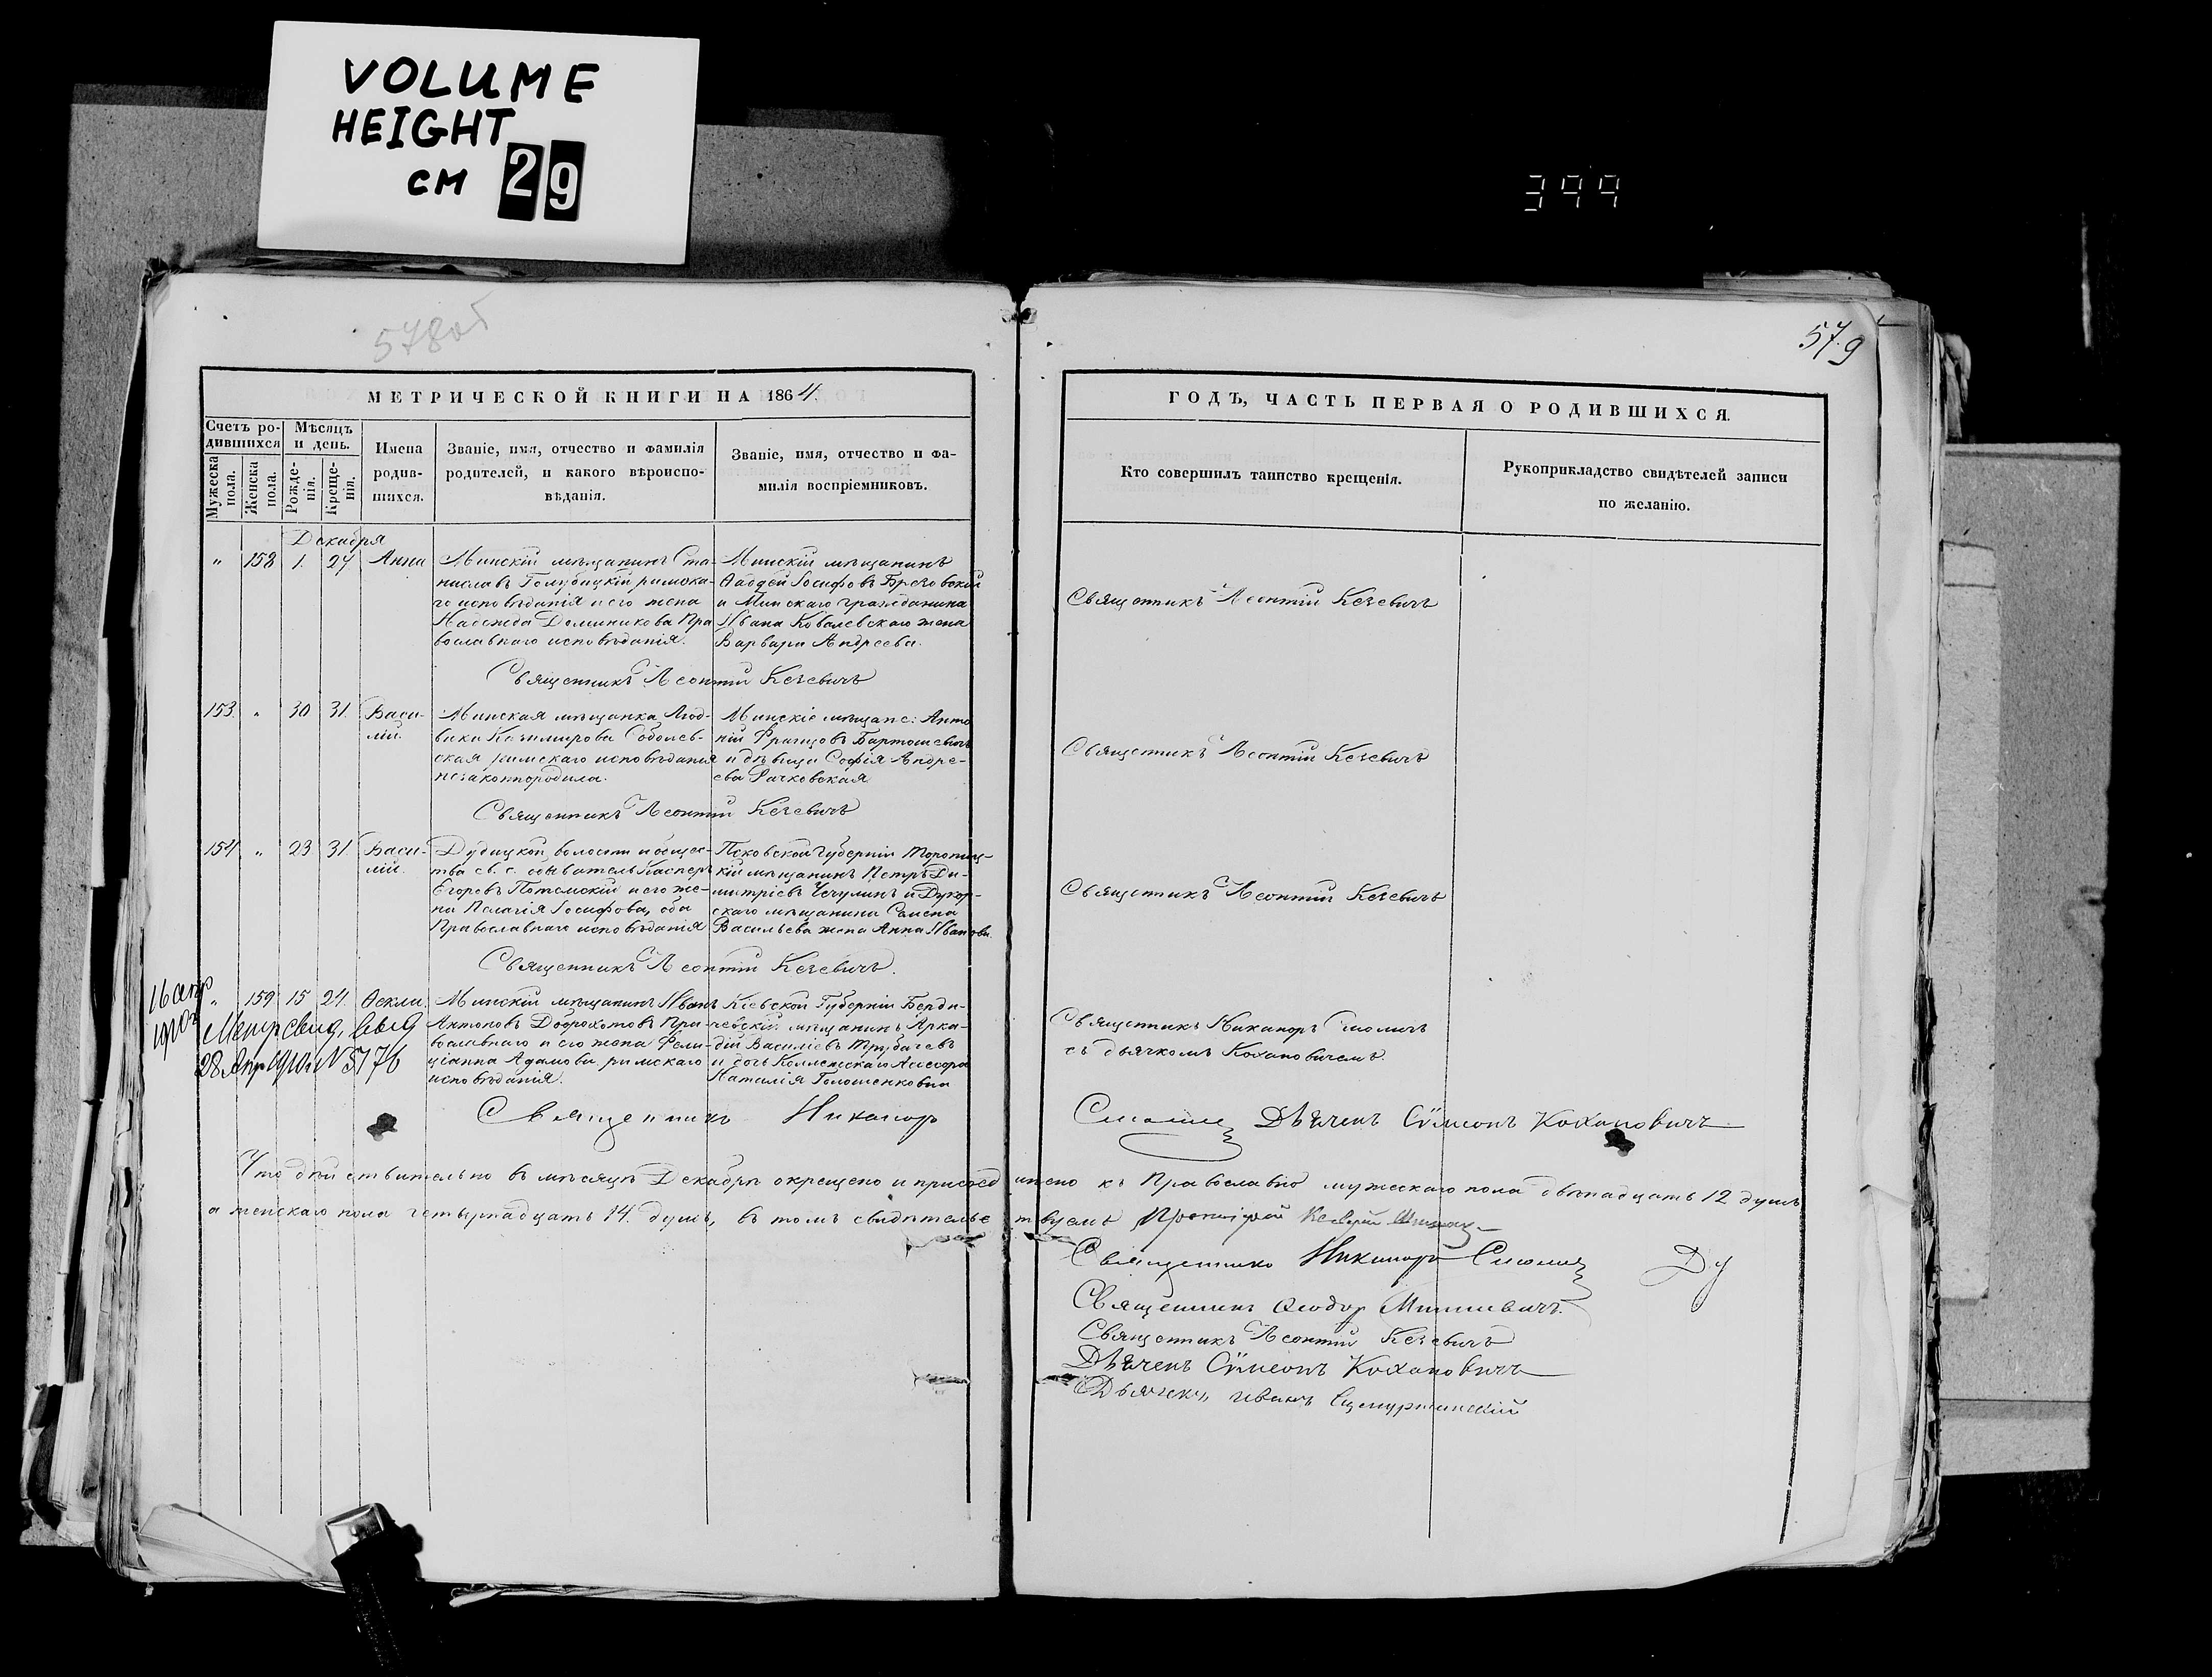 VOLUME
HEIGHT
CM 29
399
578 об
579
МЕТРИЧЕСКОЙ КНИГИ НА 1864.
Счетъ ро-
дившихся
Мужеска пола.
Женска пола.
Мѣсяцъ
и день.
Рожде-
нія.
Креще-
нія.
Имена
родив-
шихся.
Званіе, имя, отчество и фамилія
родителей, и какого вѣроиспо-
вѣданія.
Званіе, имя, отчество и фа-
милія воспріемниковъ.
ГОДЪ, ЧАСТЬ ПЕРВАЯ О РОДИВШИХСЯ.
Кто совершилъ таинство крещенія.
Рукоприкладство свидѣтелей записи
по желанію.
Декабря
" 158 1. 27 Анна
Минскій мѣщанинъ Ста-
ниславъ Голубицкій римска-
го исповѣданія и его жена
Надежда Доминикова Пра
вославнаго исповѣданія.
Минскій мѣщанинъ
Ѳаддей Іосифовъ Брезовскій
и Минскаго гражданина
Ивана Ковалевскаго жена
Варвара Андреева.
Священникъ Леонтій Кечевичъ
Священникъ Леонтій Кечевичъ
153 " 30 31. Васи-
лій.
Минская мѣщанка Люд-
вика Казимирова Соболев-
ская римскаго исповѣданія
незаконнородила.
Минскіе мѣщане: Анто
ній Францовъ Бартошевичъ
и дѣвица Софія Андре-
ева Рачковская
Священникъ Леонтій Кечевичъ
Священникъ Леонтій Кечевичъ
154 " 23 31 Васи-
лій.
Дудицкой волости и общес-
тва св. с. обыватель Касперъ
Егоровъ Потомскій и его же-
на Пелагія Іосифова, оба
Православнаго исповѣданія
Псковской Губерніи Торопец-
кій мѣщанинъ Петръ Ди-
митріевъ Чечулинъ и Дукор-
скаго мѣщанина Семена
Васильева жена Анна Иванова.
Священникъ Леонтій Кечевичъ
Священникъ Леонтій Кечевичъ.
16 апр
1910 г
" 159 15 27. Ѳекла
Метр свид. выд
28 Апр 1910 г N 5176
Минскій мѣщанинъ Иванъ
Антоновъ Доброхотовъ Пра-
вославнаго и его жена Фели-
ціанна Адамова римскаго
исповѣданія.
Кіевской Губерніи Берди-
чевскій мѣщанинъ Арка-
дій Василіевъ Трубачевъ
и дочь Коллежскаго Ассесора
Наталія Голошенковна
Священникъ Никаноръ Смоличъ
съ дьячкомъ Кохановичемъ.
Священникъ Никаноръ Смоличъ Дьяченъ Сѵмеонъ Кохановичъ
Что дѣйствительно въ мѣсяцѣ Декабрѣ окрещено и присоединено къ Православію мужескаго пола двѣнадцать 12 душъ
а женскаго пола четырнадцать 14. душъ, въ томъ свидѣтельствуемъ Протоіерей
Священникъ Никаноръ Смоличъ
Священникъ Ѳеодоръ
Священникъ Леонтій Кечевичъ
Дьяченъ Сѵмеонъ Кохановичъ
Дьячекъ иванъ